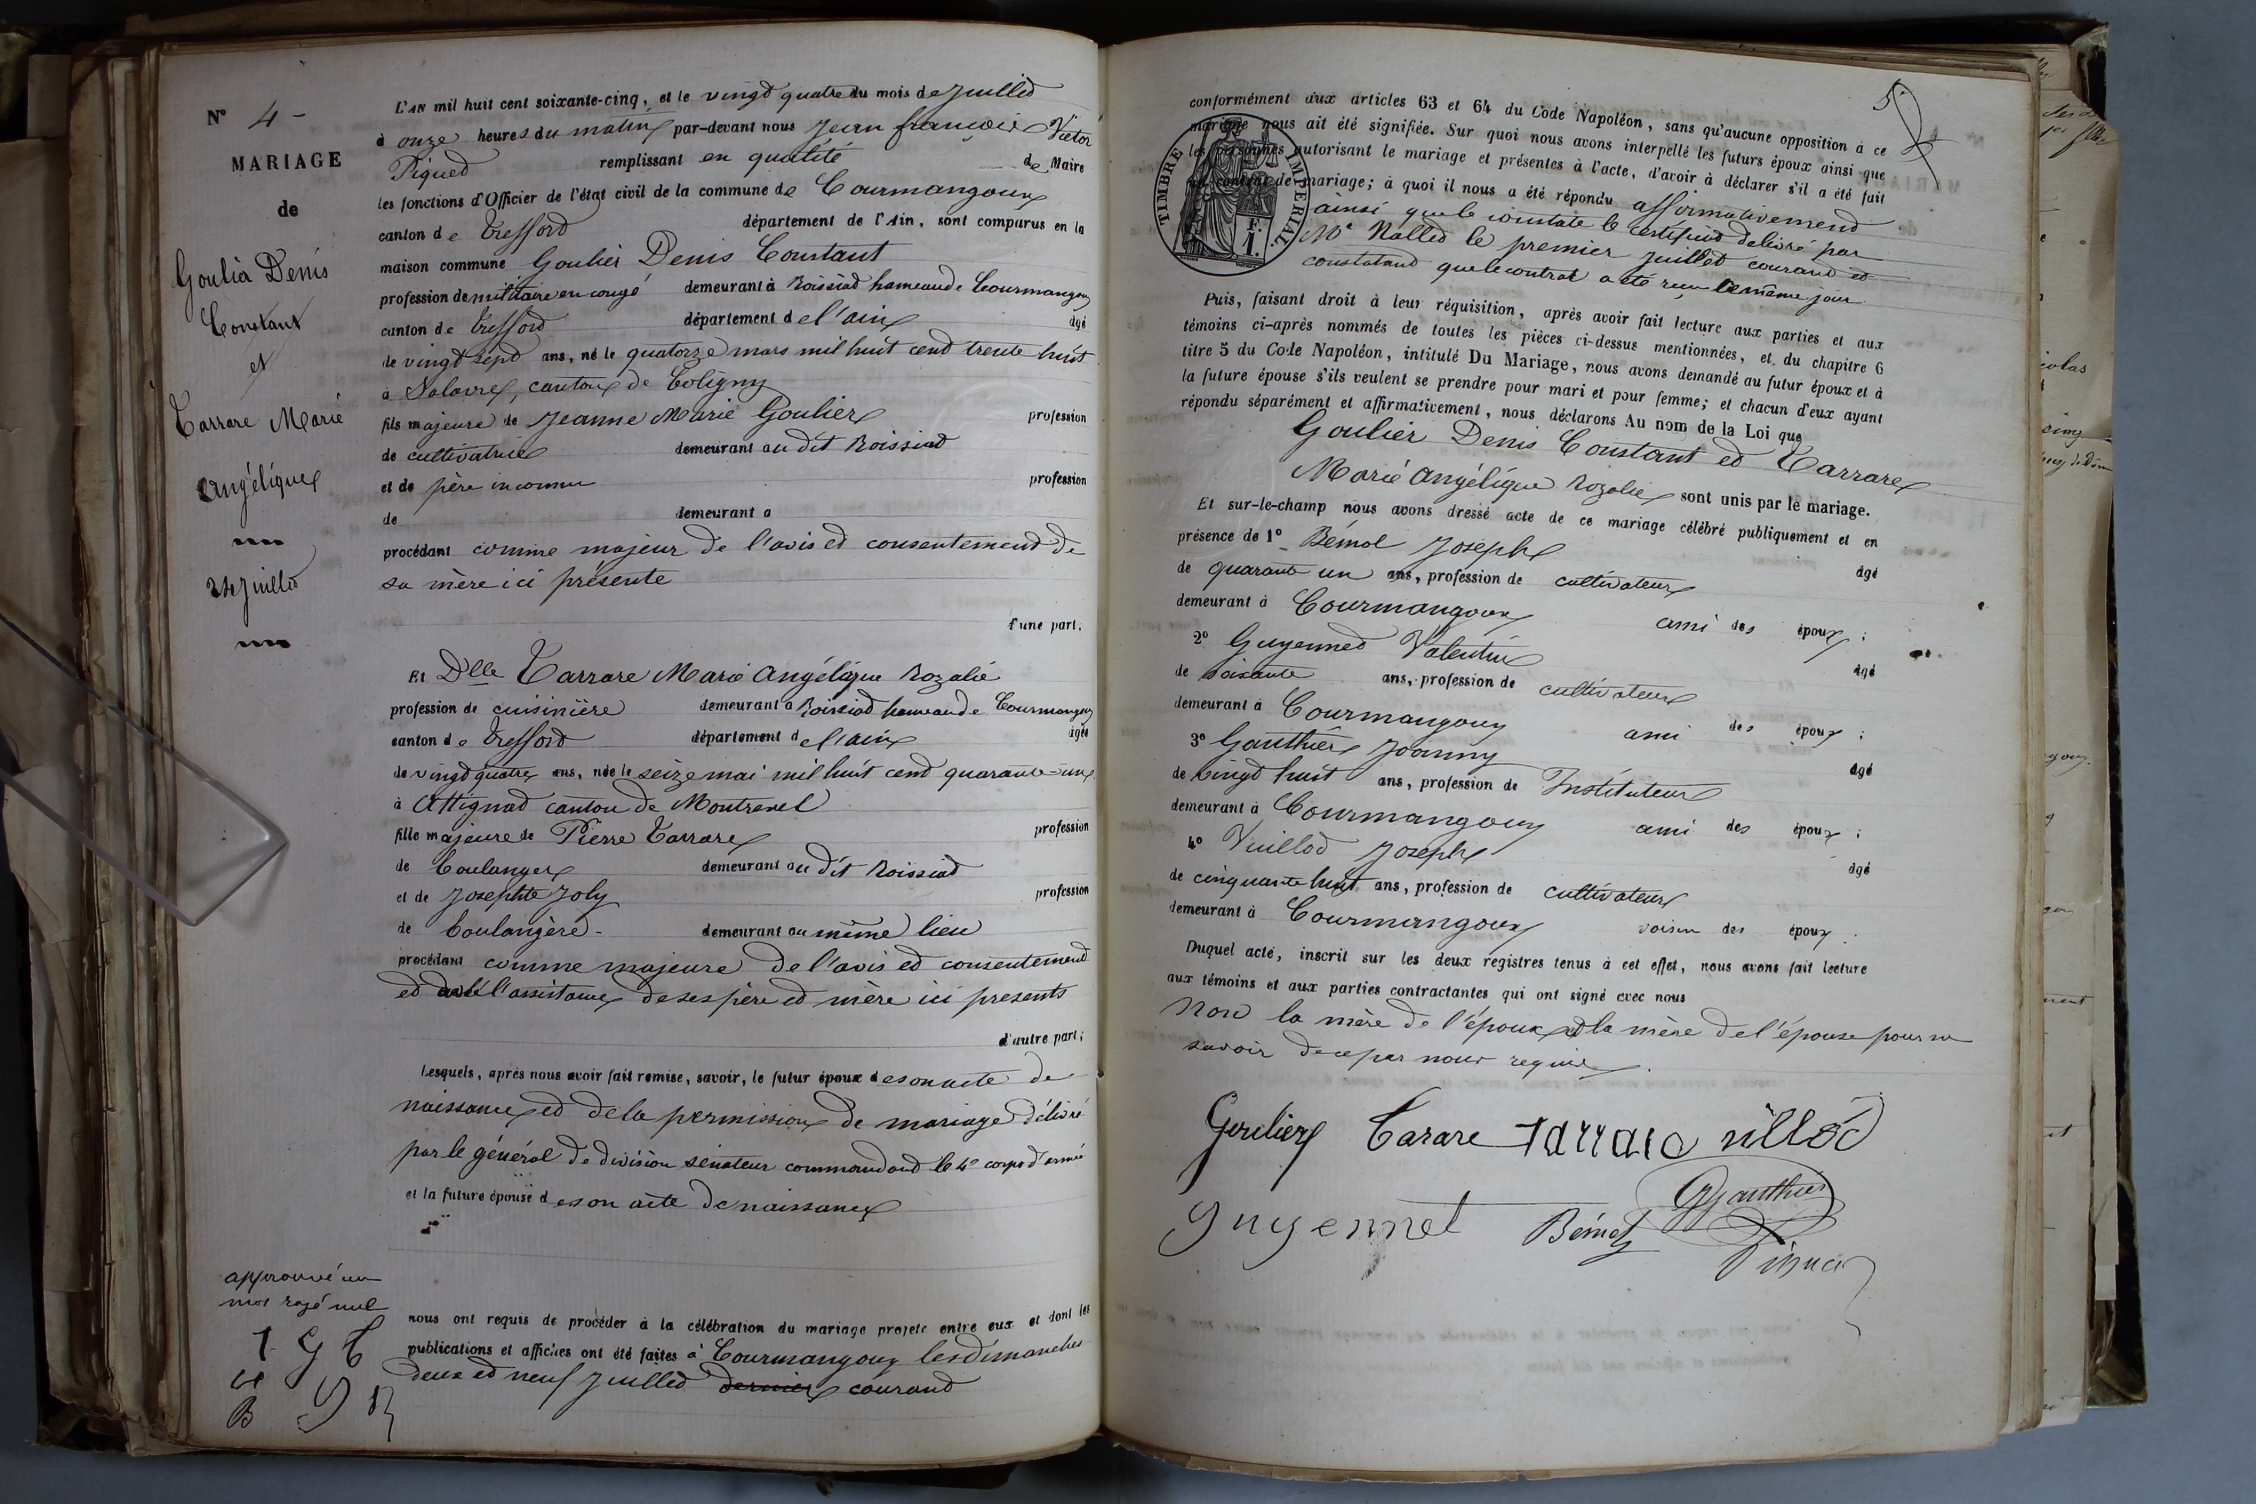 N° 4 -
MARIAGE
de
Goulier Denis
Constant
et
Tarrare Marie
Angélique
24 Juillet
L'AN mil huit cent soixante-cinq, et le vingt quatre du mois de Juillet
à onze heures du matin par-devant nous Jean françois Victor
Piquet remplissant en qualité de Maire
les fonctions d'Officier de l'état civil de la commune de Courmangoux
canton de Treffort département de l'Ain, sont comparus en la
maison commune Goulier Denis Constant
profession de militaire en congé demeurant à Roissiat hameau de Courmangoux
canton de Treffort département de l'ain âgé
de vingt sept ans, né le quatorze mars mil huit cent trente huit
à Salavre, canton de Coligny
fils majeure de Jeanne Marie Goulier profession
de cultivatrice demeurant au dit Roissiat
et de père inconnu profession
de demeurant a
procédant comme majeur de l'avis et consentement de
sa mère ici présente
d'une part.
Et Dlle Tarrare Marie Angélique Rozalie
profession de cuisinière demeurant à Roissiat hameau de Courmangoux
canton de Treffort département de l'ain âgée
de vingt quatre ans, née le seize mai mil huit cent quarante-un
à Attignat canton de Montrevel
fille majeure de Pierre Tarrare profession
de boulanger demeurant au dit Roissiat
et de Josephte Joly profession
de boulangère - demeurant au même lieu
procédant comme majeure de l'avis et consentement
et de l'assistance de ses père et mère ici presents
d'autre part;
Lesquels, après nous avoir fait remise, savoir, le futur époux de son acte de
naissance et de la permission de mariage délivré
par le général de division sénateur commandant le 4e corps d'armée
et la future épouse de son acte de naissance
nous ont requis de procéder à la célébration du mariage projeté entre eux et dont les
publications et affiches ont été faites à Courmangoux les dimanches
deux et neuf Juillet dernier courant
approuvé un
mot rayé nul
T G T
B G
5
conformément aux articles 63 et 64 du Code Napoléon, sans qu'aucune opposition à ce
mariage nous ait été signifiée. Sur quoi nous avons interpellé les futurs époux ainsi que
les personnes autorisant le mariage et présentes à l'acte, d'avoir à déclarer s'il a été fait
un contrat de mariage; à quoi il nous a été répondu affirmativement
ainsi que le constate le certificat délivré par
Me Nallet le premier juillet courant et
constatant que le contrat a été reçu le même jour
TIMBRE IMPERIAL
1 F.
Puis, faisant droit à leur réquisition, après avoir fait lecture aux parties et aux
témoins ci-après nommés de toutes les pièces ci-dessus mentionnées, et du chapitre 6
titre 5 du Code Napoléon, intitulé Du Mariage, nous avons demandé au futur époux et à
la future épouse s'ils veulent se prendre pour mari et pour femme; et chacun d'eux ayant
répondu séparément et affirmativement, nous déclarons Au nom de la Loi que
Goulier Denis Constant et Tarrare
Marie Angélique Rozalie sont unis par le mariage.
Et sur-le-champ nous avons dressé acte de ce mariage célébré publiquement et en
présence de 1° Bémol Joseph
de quarante un ans, profession de cultivateur âgé
demeurant à Courmangoux ami des époux;
2° Guyennet Valentin
de soixante ans, profession de cultivateur âgé
demeurant à Courmangoux ami des époux;
3° Gauthier Joanny
de vingt huit ans, profession de Instituteur âgé
demeurant à Courmangoux ami des époux;
4° Vuillod Joseph
de cinquante huit ans, profession de cultivateur âgé
demeurant à Courmangoux voisin des époux.
Duquel acte, inscrit sur les deux registres tenus à cet effet, nous avons fait lecture
aux témoins et aux parties contractantes qui ont signé avec nous
Non la mère de l'époux et la mère de l'épouse pour ne
savoir de ce par nous requise.
Goulier Tarare Tarrare villod
Guyennet Bémol Gauthier
Piquet